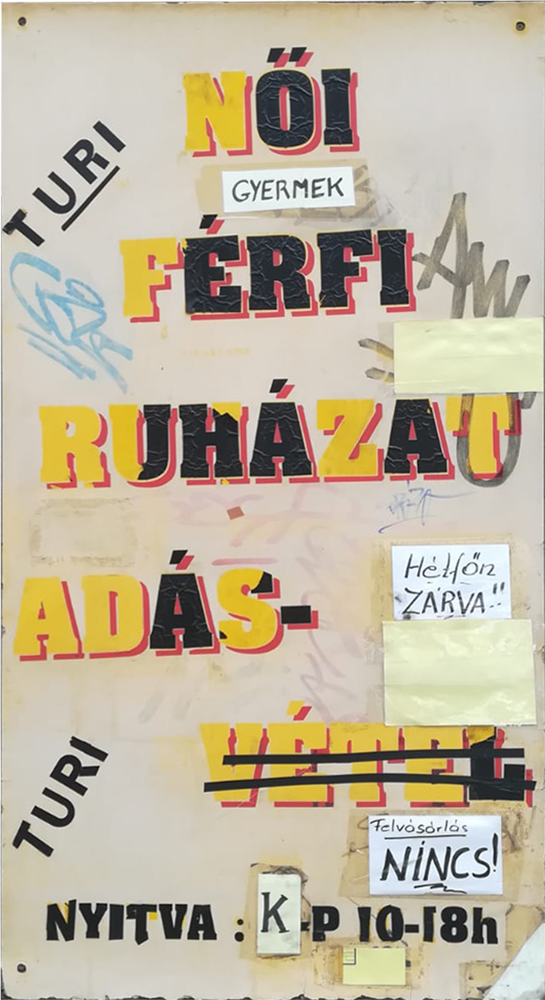 NŐI
TURI
GYERMEK
FÉRFI
RUHÁZAT
Hétfőn
ZÁRVA!!
ADÁS-
VÉTEL
TURI
Felvásárlás
NINCS!
NYITVA : K-P 10-18h